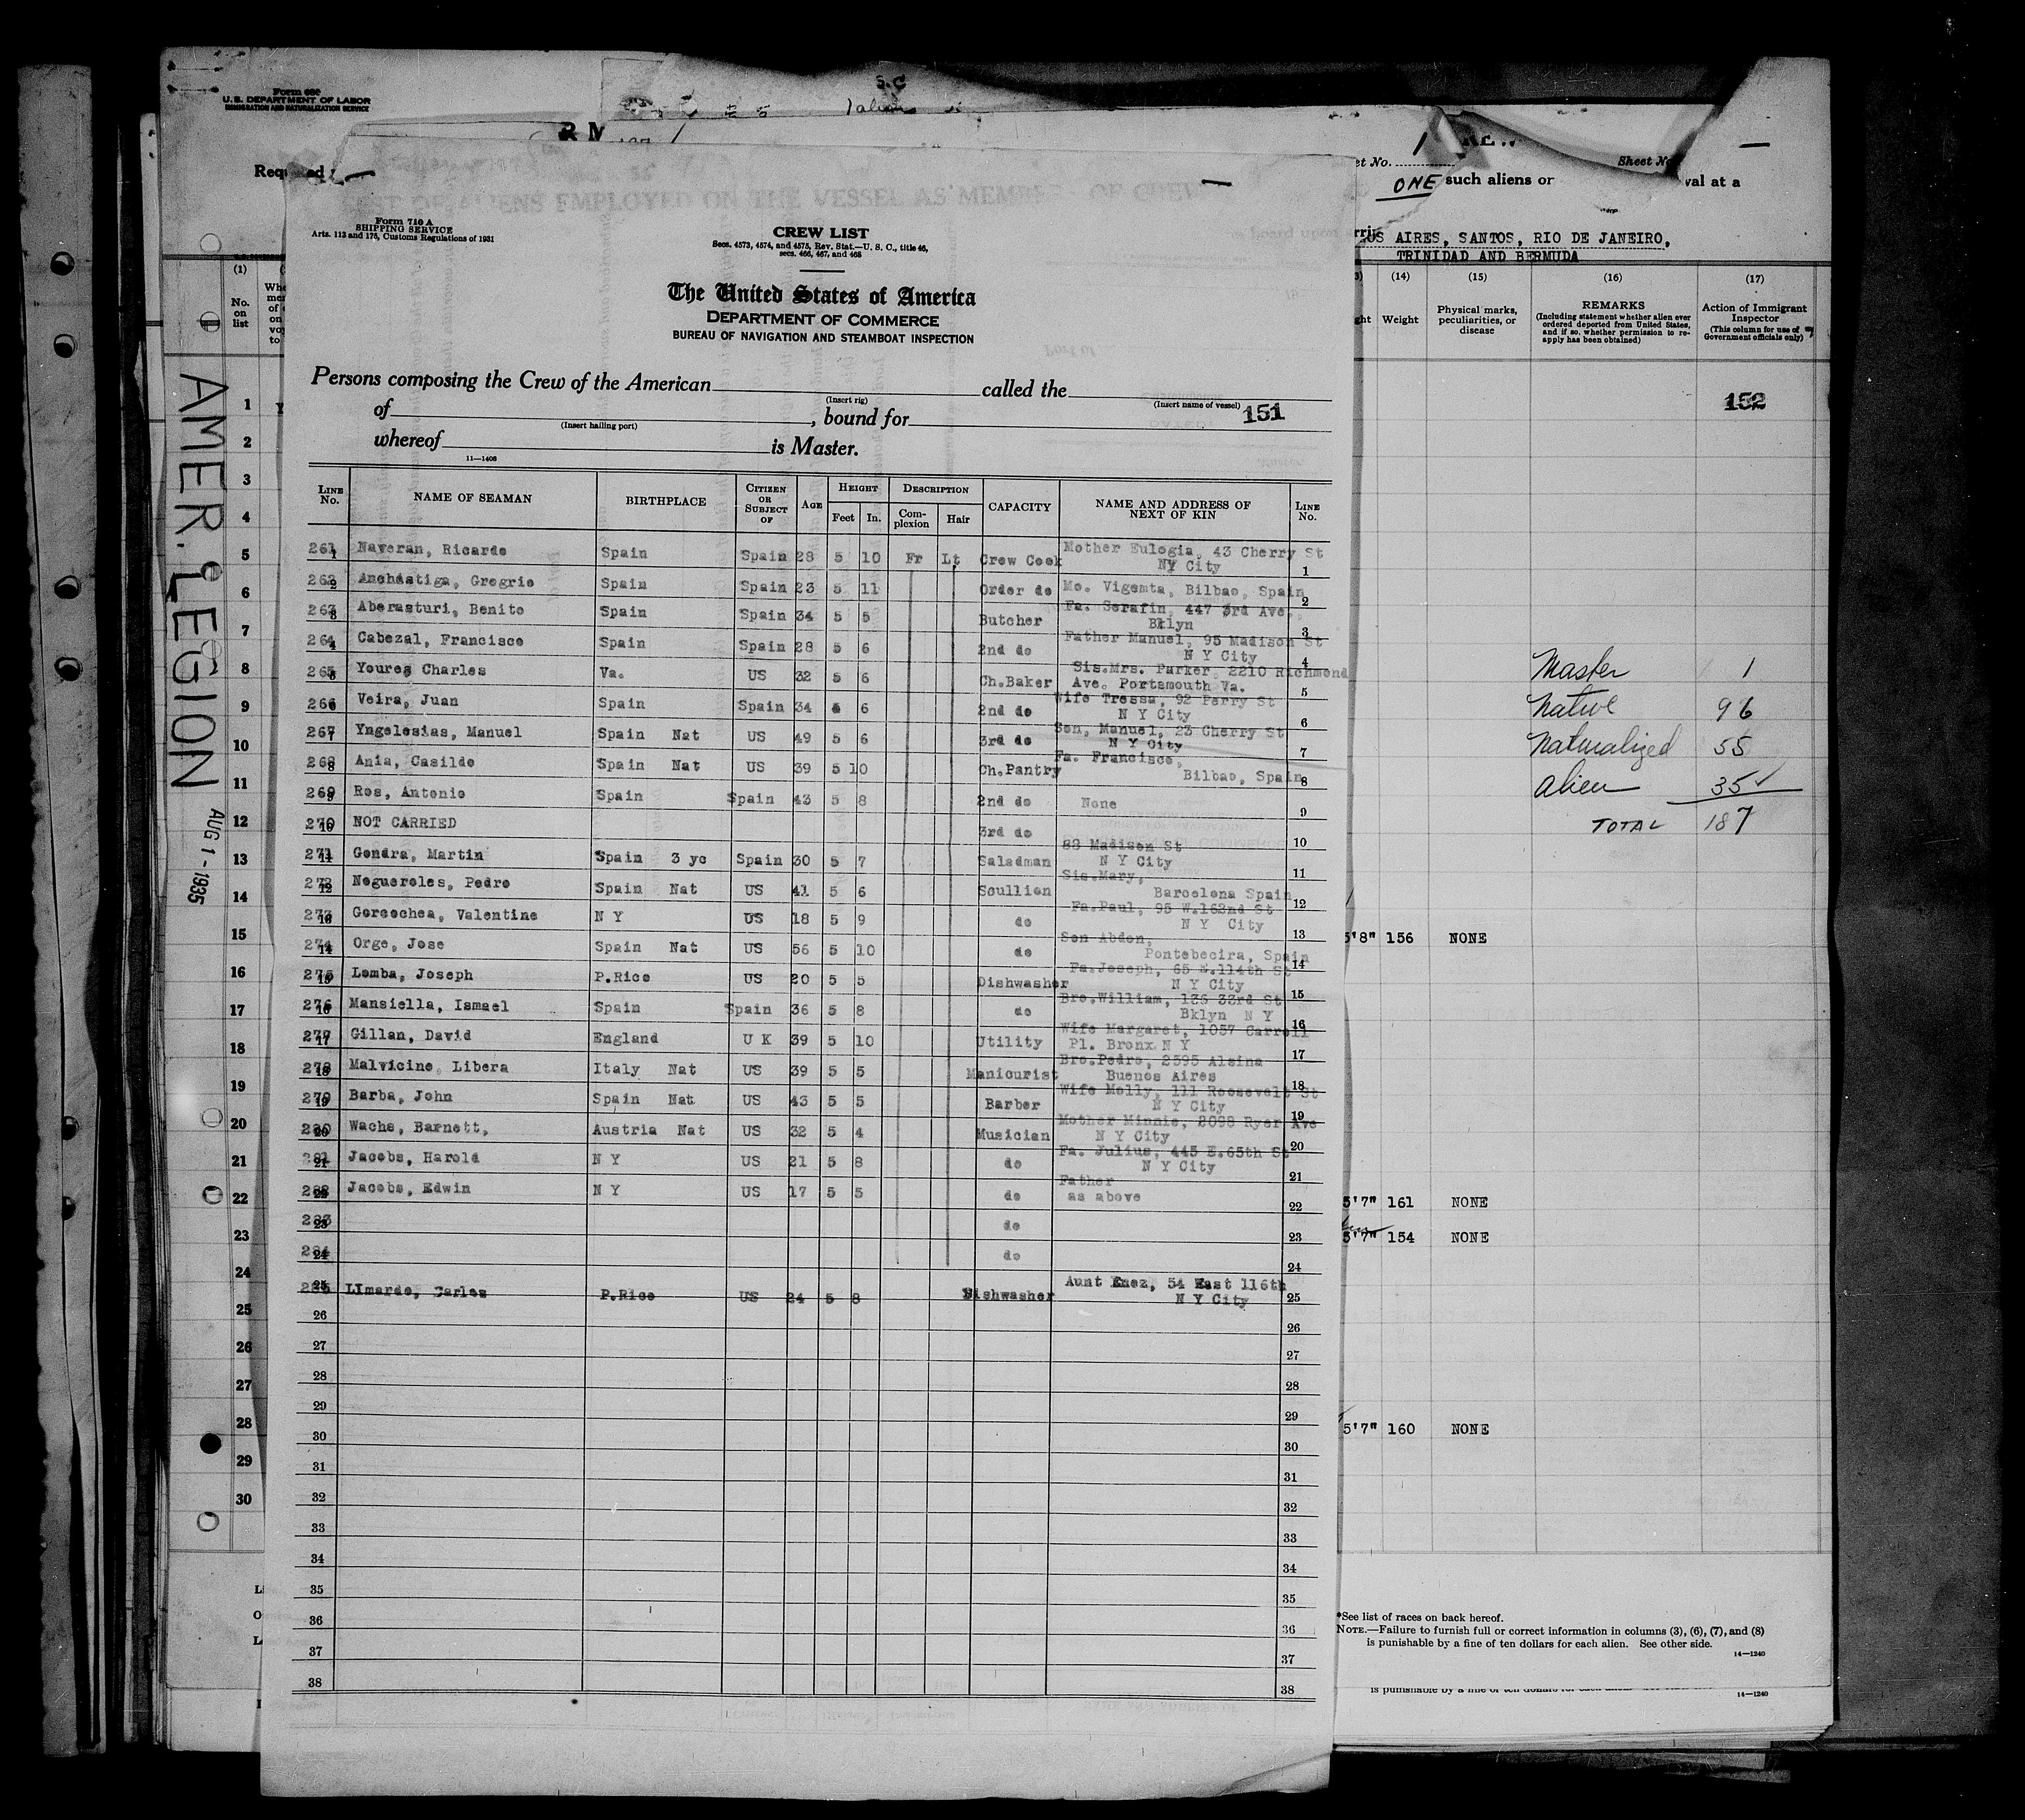 Form 680
U.S. DEPARTMENT OF LABOR
IMMIGRATION AND NATURALIZATION SERVICE
S.C
Sheet No. 1
Sheet No
ONE such aliens or
val at a
OS AIRES, SANTOS, RIO DE JANEIRO,
TRINIDAD AND BERMUDA
AMER. LEGION
AUG 1 - 1935
(1)
No. on list
Form 710 A
SHIPPING SERVICE
Arts. 112 and 175, Customs Regulations of 1931
CREW LIST
Secs. 4573, 4574, and 4575, Rev. Stat.—U. S. C., title 46,
secs. 466, 467, and 468
The United States of America
DEPARTMENT OF COMMERCE
BUREAU OF NAVIGATION AND STEAMBOAT INSPECTION
Persons composing the Crew of the American called the
(Insert rig) (Insert name of vessel) 151
of , bound for
(Insert hailing port)
whereof is Master.
11—1406
LINE No. NAME OF SEAMAN BIRTHPLACE CITIZEN OR SUBJECT OF AGE HEIGHT Feet In. DESCRIPTION Complexion Hair CAPACITY NAME AND ADDRESS OF NEXT OF KIN LINE No.
261 1 Naveran, Ricardo Spain Spain 28 5 10 Fr Lt Crew Cook Mother Eulogia, 43 Cherry St NY City 1
262 2 Anchastiga, Gregrio Spain Spain 23 5 11 Order do Mo. Vigemta, Bilbao, Spain 2
263 3 Aberasturi, Benito Spain Spain 34 5 5 Butcher Fa. Serafin, 447 3rd Ave, Bklyn 3
264 4 Cabezal, Francisco Spain Spain 28 5 6 2nd do Father Manuel, 95 Madison St N Y City 4
265 5 Youres Charles Va. US 32 5 6 Ch.Baker Sis.Mrs. Parker, 2210 Richmond Ave. Portsmouth Va. 5
266 6 Veira, Juan Spain Spain 34 5 6 2nd do Wife Tressa, 92 Perry St N Y City 6
267 7 Yngelesias, Manuel Spain Nat US 49 5 6 3rd do Son, Manuel, 23 Cherry St N Y City 7
268 8 Ania, Casildo Spain Nat US 39 5 10 Ch.Pantry Fa. Francisco, Bilbao, Spain 8
269 9 Ros, Antonio Spain Spain 43 5 8 2nd do None 9
270 10 NOT CARRIED 3rd do 10
271 11 Gondra, Martin Spain 3 yc Spain 30 5 7 Saladman 83 Madison St N Y City 11
272 12 Negueroles, Pedro Spain Nat US 41 5 6 Scullion Sis.Mary, Barcelona Spain 12
273 13 Goreochea, Valentine N Y US 18 5 9 do Fa.Paul, 95 W.162nd St N Y City 13
274 14 Orge, Jose Spain Nat US 56 5 10 do Son Abdon, Pontebecira, Spain 14
275 15 Lomba, Joseph P.Rico US 20 5 5 Dishwasher Fa.Joseph, 65 E.114th St N Y City 15
276 16 Mansiella, Ismael Spain Spain 36 5 8 do Bro.William, 136 33rd St Bklyn N Y 16
277 17 Gillan, David England U K 39 5 10 Utility Wife Margaret, 1057 Carroll Pl. Bronx N Y 17
278 18 Malvicino, Libera Italy Nat US 39 5 5 Manicurist Bro.Pedro, 2595 Alsina Buenos Aires 18
279 19 Barba, John Spain Nat US 43 5 5 Barber Wife Molly, 111 Roosevelt St N Y City 19
280 20 Wachs, Barnett, Austria Nat US 32 5 4 Musician Mother Minnie, 2098 Ryer Ave N Y City 20
281 21 Jacobs, Harold N Y US 21 5 8 do Fa. Julius, 445 E.65th St N Y City 21
282 22 Jacobs, Edwin N Y US 17 5 5 do Father as above 22
283 23 do 23
284 24 do 24
285 25 LImardo, Carlos P.Rico US 24 5 8 Dishwasher Aunt Enez, 54 East 116th N Y City 25
26 26
27 27
28 28
29 29
30 30
31 31
32 32
33 33
34 34
35 35
36 36
37 37
38 38
1
2
3
4
5
6
7
8
9
10
11
12
13
14
15
16
17
18
19
20
21
22
23
24
25
26
27
28
29
30
(14) (15) (16) (17)
Weight
Physical marks, peculiarities, or disease
REMARKS
(Including statement whether alien ever ordered deported from United States, and if so, whether permission to reapply has been obtained)
Action of Immigrant Inspector
(This column for use of Government officials only)
152
Master 1
Native 96
Naturalized 55
Alien 35 ✓
TOTAL 187
5'8" 156 NONE
5'7" 161 NONE
5'7" 154 NONE
5'7" 160 NONE
*See list of races on back hereof.
NOTE.—Failure to furnish full or correct information in columns (3), (6), (7), and (8)
is punishable by a fine of ten dollars for each alien. See other side.
14—1240
14—1240